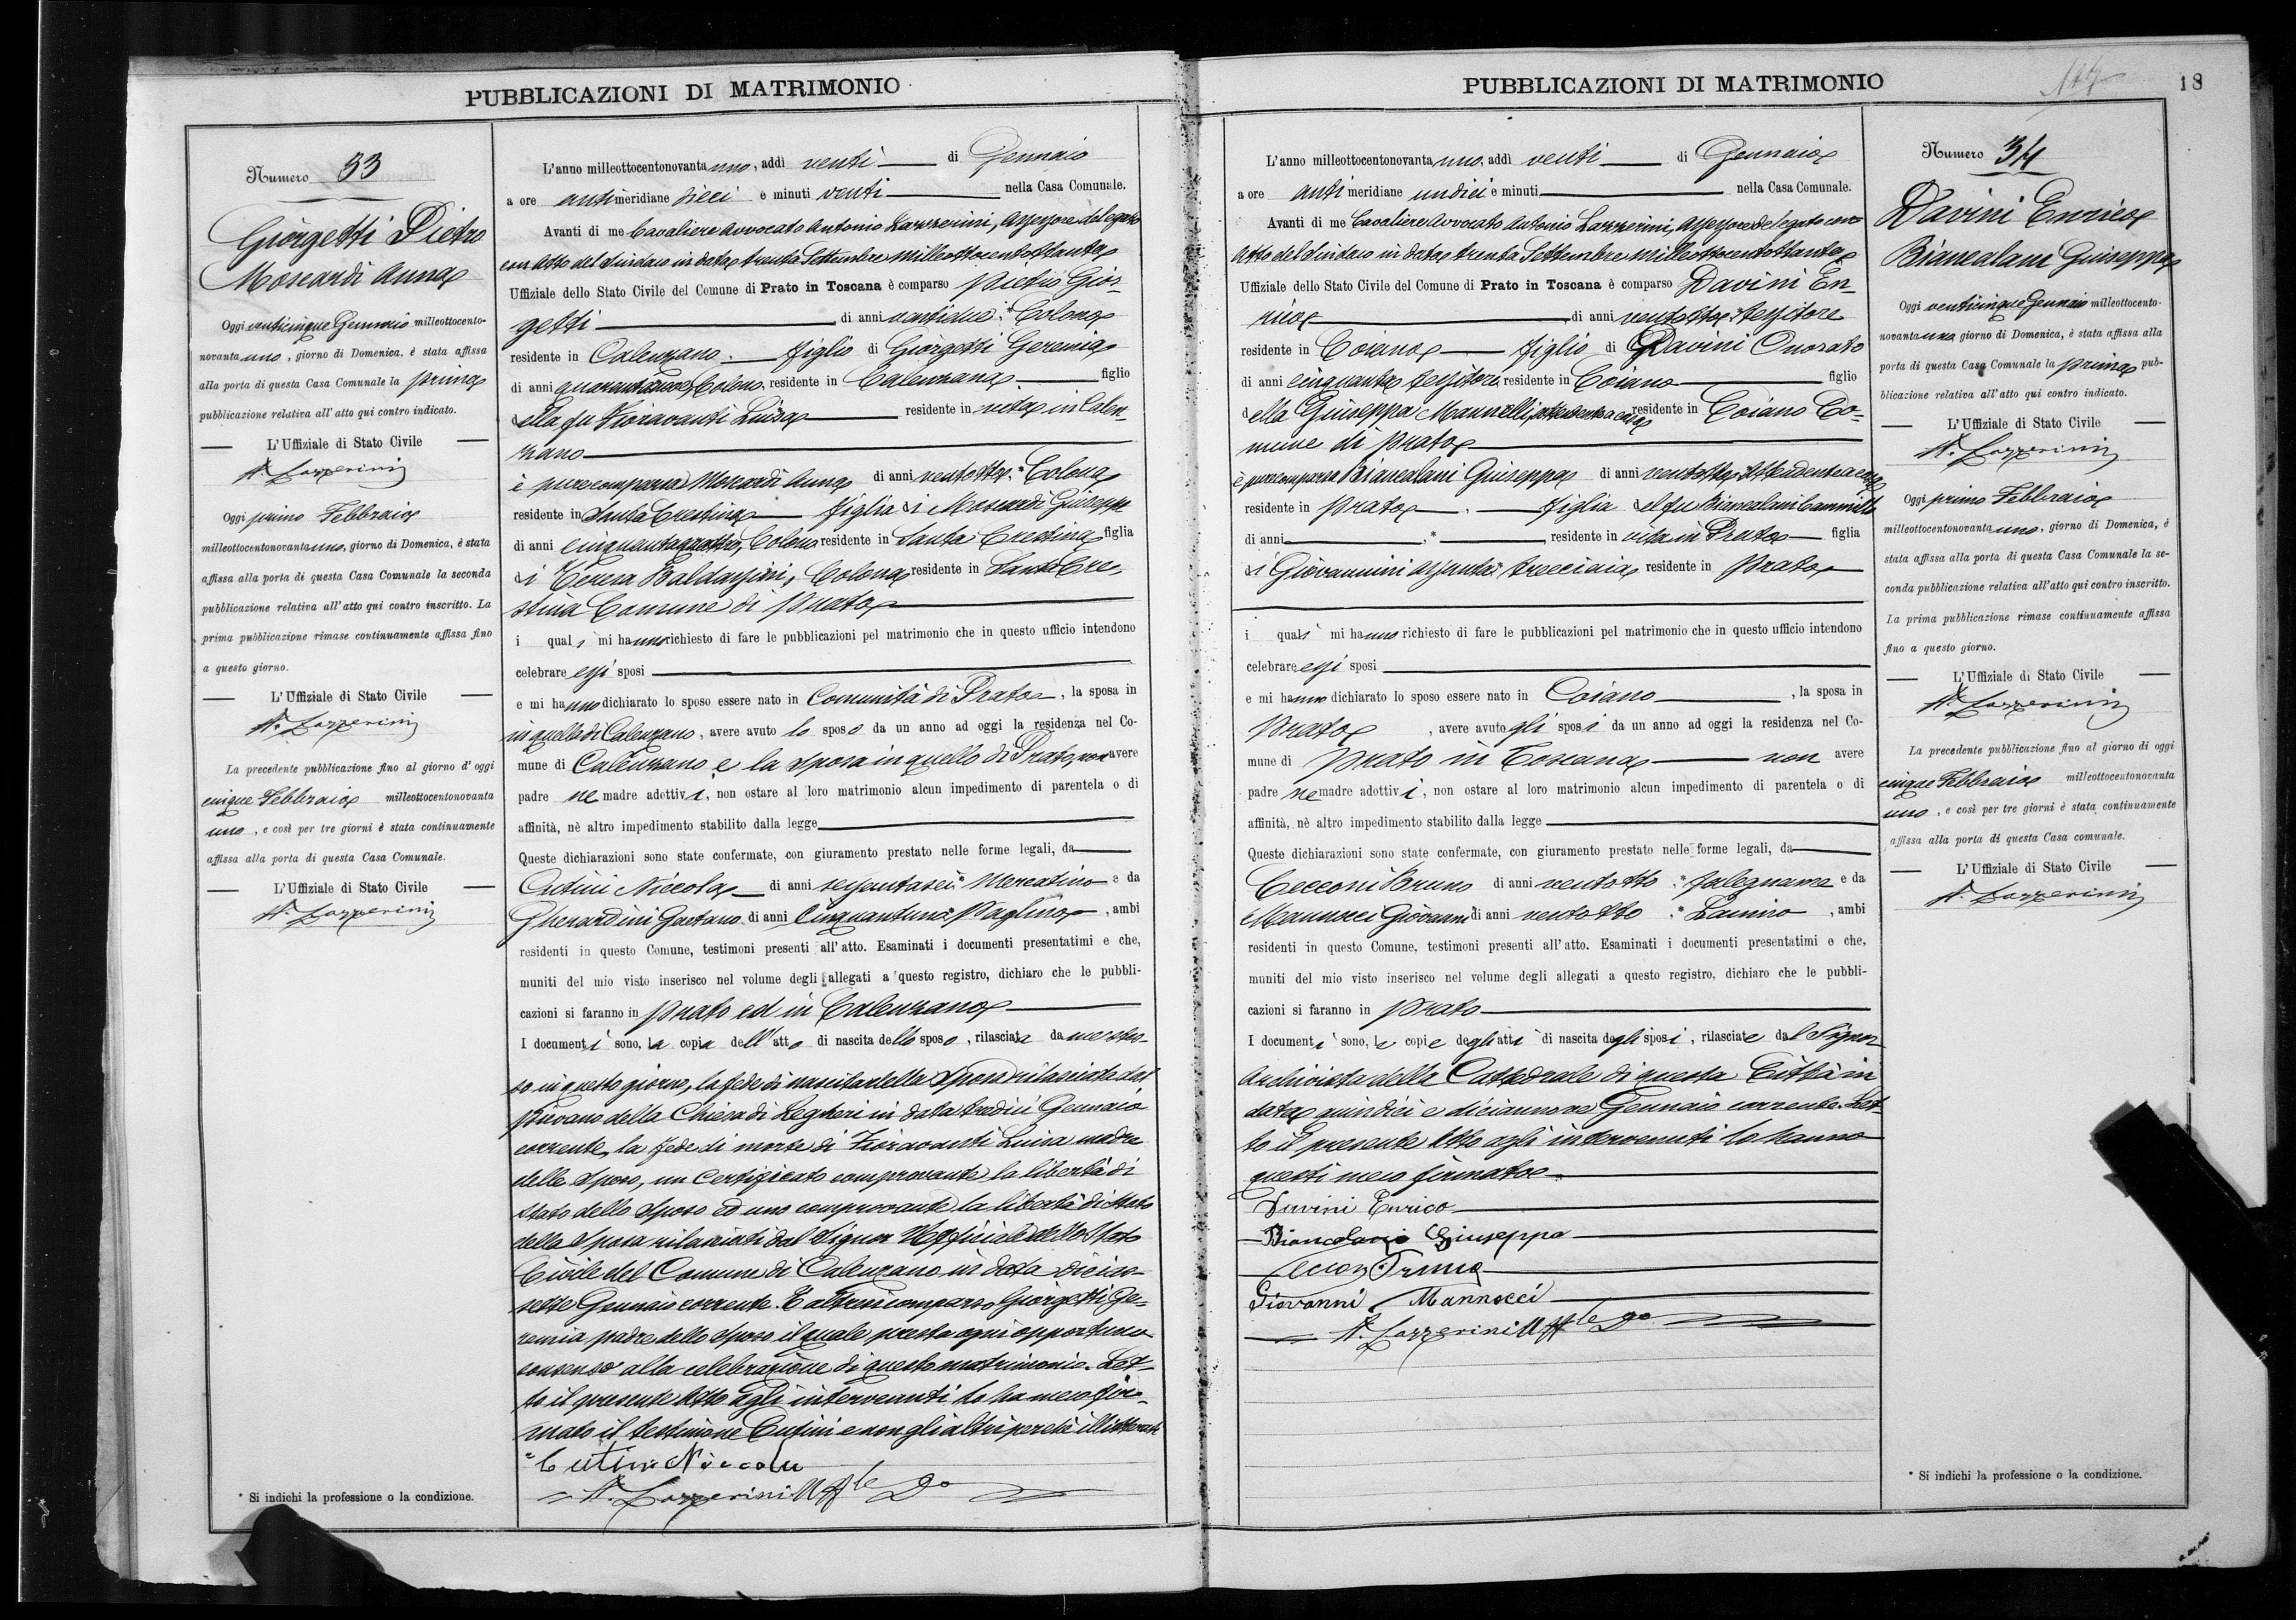 PUBBLICAZIONI DI MATRIMONIO
Numero 33
Giorgetti Pietro
Moscardi Anna
Oggi venticinque Gennaio milleottocento-
novanta uno, giorno di Domenica, è stata affissa
alla porta di questa Casa Comunale la prima
pubblicazione relativa all'atto qui contro indicato.
L'Uffiziale di Stato Civile
A. Lazzerini
Oggi primo Febbraio
milleottocentonovanta uno, giorno di Domenica, è stata
affissa alla porta di questa Casa Comunale la seconda
pubblicazione relativa all'atto qui contro inscritto. La
prima pubblicazione rimase continuamente affissa fino
a questo giorno.
L'Uffiziale di Stato Civile
A. Lazzerini
La precedente pubblicazione fino al giorno d'oggi
cinque Febbraio milleottocentonovanta
uno, e così per tre giorni è stata continuamente
affissa alla porta di questa Casa Comunale.
L'Uffiziale di Stato Civile
A. Lazzerini
* Si indichi la professione o la condizione.
L'anno milleottocentonovanta uno, addì venti di Gennaio
a ore anti meridiane dieci e minuti venti nella Casa Comunale.
Avanti di me Cavaliere Avvocato Antonio Lazzerini, Assessore delegato
con Atto del Sindaco in data trenta Settembre milleottocentottanta
Uffiziale dello Stato Civile del Comune di Prato in Toscana è comparso Pietro Gior-
getti di anni ventidue * Colono
residente in Calenzano figlio di Giorgetti Geremia
di anni Colono residente in Calenzano figlio
della fu Fioravanti Luisa residente in vita in Calen-
zano
è pure comparsa Moscardi Anna di anni ventotto * Colona
residente in Santa Crestina figlia di Moscardi Giuseppe
di anni cinquantaquattro, Colono residente in Santa Crestina figlia
di Teresa Baldassini, Colona residente in Santa Cre-
stina Comune di Prato
i quali mi hanno richiesto di fare le pubblicazioni pel matrimonio che in questo ufficio intendono
celebrare essi sposi
e mi hanno dichiarato lo sposo essere nato in Comunità di Prato, la sposa in
in quella di Calenzano, avere avuto lo sposo da un anno ad oggi la residenza nel Co-
mune di Calenzano e la sposa in quello di Prato, non avere
padre ne madre adottivi, non ostare al loro matrimonio alcun impedimento di parentela o di
affinità, nè altro impedimento stabilito dalla legge
Queste dichiarazioni sono state confermate, con giuramento prestato nelle forme legali, da
Cutini Niccola di anni sessantasei * Mercatino e da
Gherardini Gaetano di anni cinquantuno * Paglino, ambi
residenti in questo Comune, testimoni presenti all'atto. Esaminati i documenti presentatimi e che,
muniti del mio visto inserisco nel volume degli allegati a questo registro, dichiaro che le pubbli-
cazioni si faranno in Prato ed in Calenzano
I documenti sono, la copia dell'atto di nascita dello sposo, rilasciata da me stes-
so in questo giorno, la fede di nascita della Sposa rilasciata dal
Pievano della Chiesa di Legheri in data tredici Gennaio
corrente, la fede di morte di Fioravanti Luisa madre
dello Sposo, un certificato comprovante la libertà di
stato dello Sposo ed uno comprovante la libertà di stato
della Sposa rilasciati dal Signor Uffiziale dello Stato
Civile del Comune di Calenzano in data dicias-
sette Gennaio corrente. È altresì comparso Giorgetti Ge-
remia padre dello Sposo il quale presta ogni opportuno
consenso alla celebrazione di questo matrimonio. Let-
to il presente Atto agli intervenuti lo ha meco fir-
mato il testimone Cutini e non gli altri perchè illetterati
Cutini Niccola
A. Lazzerini Uffle Do
PUBBLICAZIONI DI MATRIMONIO
18
L'anno milleottocentonovanta uno, addì venti di Gennaio
a ore anti meridiane undici e minuti nella Casa Comunale.
Avanti di me Cavaliere Avvocato Antonio Lazzerini, Assessore delegato con
Atto del Sindaco in data trenta Settembre milleottocentottanta
Uffiziale dello Stato Civile del Comune di Prato in Toscana è comparso Davini En-
rico di anni ventotto * tessitore
residente in Coiano figlio di Davini Onorato
di anni cinquanta tessitore residente in Coiano figlio
della Giuseppa Mannelli, attendente a casa residente in Coiano Co-
mune di Prato
è pure comparsa Biancalani Giuseppa di anni ventotto * Attendente a casa
residente in Prato figlia del fu Biancalani Cammillo
di anni * residente in vita in Prato figlia
di Giovannini Assunta trecciaia residente in Prato
i quali mi hanno richiesto di fare le pubblicazioni pel matrimonio che in questo ufficio intendono
celebrare essi sposi
e mi hanno dichiarato lo sposo essere nato in Coiano, la sposa in
Prato, avere avuto gli sposi da un anno ad oggi la residenza nel Co-
mune di Prato in Toscana non avere
padre ne madre adottivi, non ostare al loro matrimonio alcun impedimento di parentela o di
affinità, nè altro impedimento stabilito dalla legge
Queste dichiarazioni sono state confermate, con giuramento prestato nelle forme legali, da
Cecconi Bruno di anni ventotto * falegname e da
Mannocci Giovanni di anni ventotto * Lanino, ambi
residenti in questo Comune, testimoni presenti all'atto. Esaminati i documenti presentatimi e che,
muniti del mio visto inserisco nel volume degli allegati a questo registro, dichiaro che le pubbli-
cazioni si faranno in Prato
I documenti sono, le copie degli atti di nascita degli sposi, rilasciate dal Signor
Archivista della Cattedrale di questa Città in
data quindici e diciannove Gennaio corrente. Let-
to il presente Atto agli intervenuti lo hanno
questi meco firmato
Davini Enrico
Biancalani Giuseppa
Giovanni Mannocci
A. Lazzerini Uffle Do
Numero 34
Davini Enrico
Biancalani Giuseppa
Oggi venticinque Gennaio milleottocento-
novanta uno giorno di Domenica, è stata affissa alla
porta di questa Casa Comunale la prima pub-
blicazione relativa all'atto qui contro indicato.
L'Uffiziale di Stato Civile
A. Lazzerini
Oggi primo Febbraio
milleottocentonovanta uno, giorno di Domenica, è
stata affissa alla porta di questa Casa Comunale la se-
conda pubblicazione relativa all'atto qui contro inscritto.
La prima pubblicazione rimase continuamente affissa
fino a questo giorno.
L'Uffiziale di Stato Civile
A. Lazzerini
La precedente pubblicazione fino al giorno di oggi
cinque Febbraio milleottocentonovanta
uno, e così per tre giorni è stata continuamente
affissa alla porta di questa Casa comunale.
L'Uffiziale di Stato Civile
A. Lazzerini
* Si indichi la professione o la condizione.